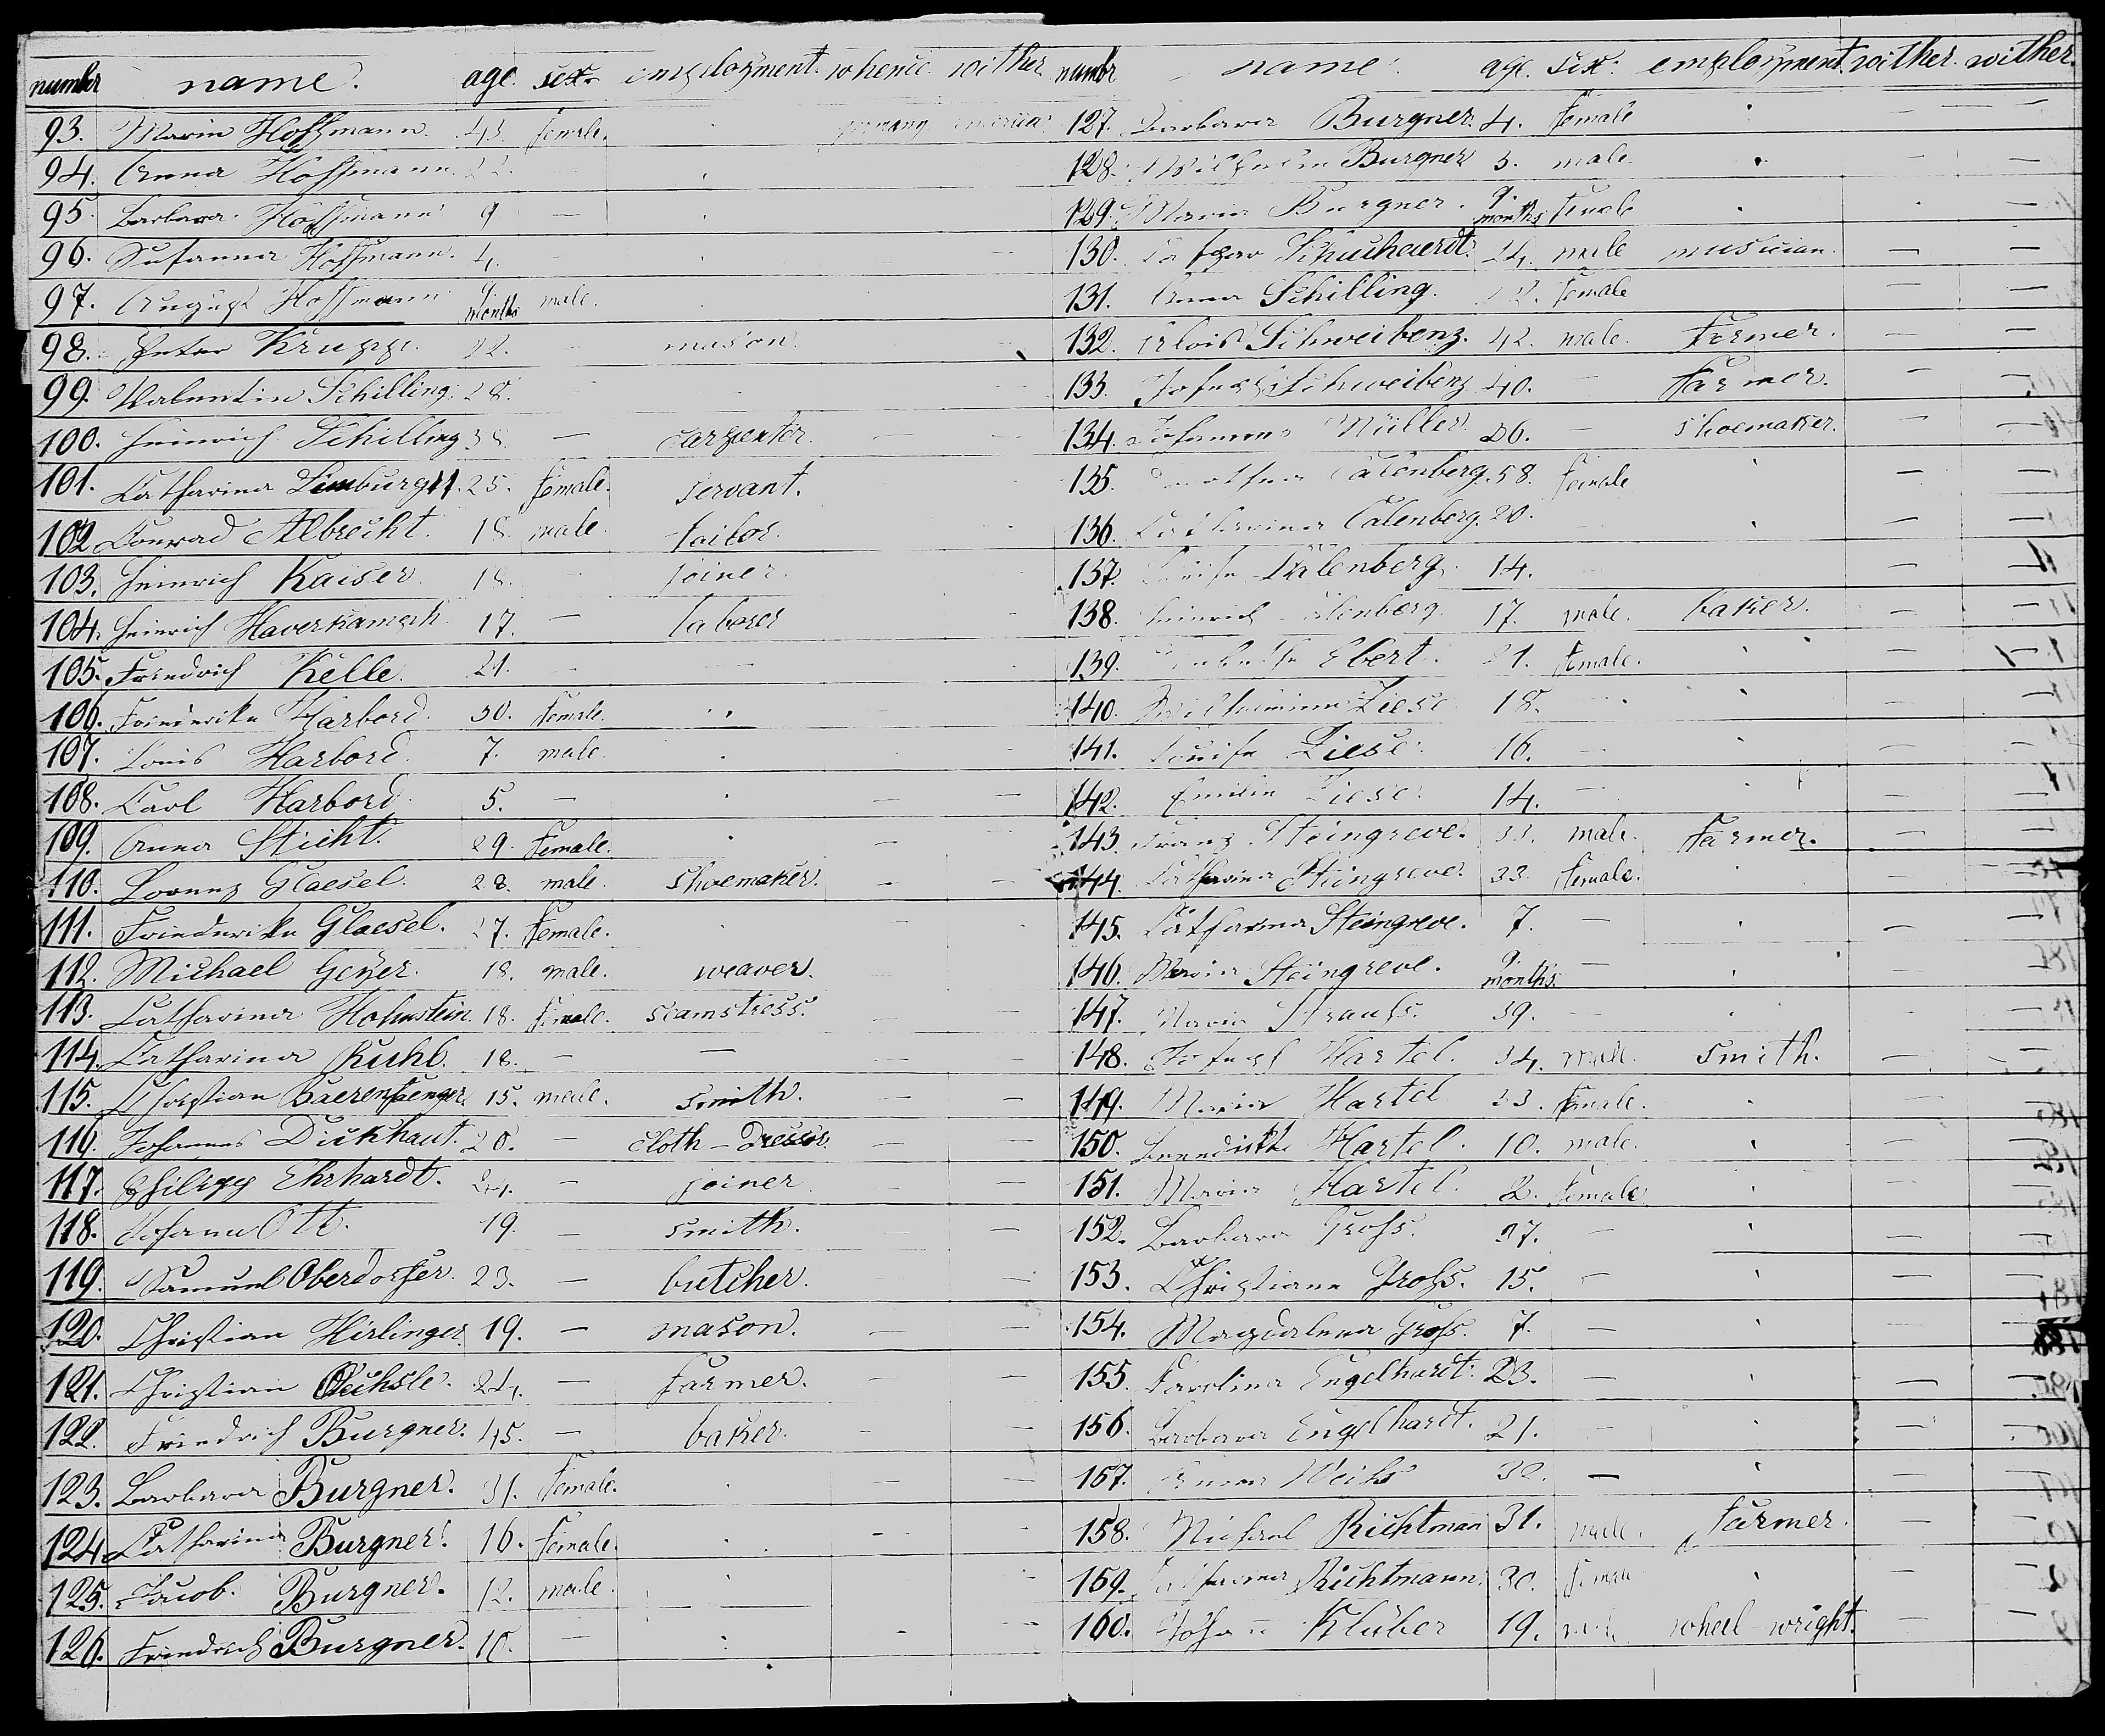 number name. age. sex. employment. whence. wither.
93. Maria Hoffmann. 43. female. germany america
94. Anna Hoffmann. 22.
95. Barbara Hoffmann 9 —
96. Susanna Hoffmann. 4. —
97. August Hoffmann 9 months male.
98. Peter Krupp. 22. — mason.
99. Valentin Schilling. 28. —
100. Heinrich Schilling — carpenter.
101. Catharina 25. female. servant.
102. Conrad Albrecht. 18. male. tailor.
103. Heinrich Kaiser. 18. — joiner.
104. Heinrich Haverkamph. 17. — laborer
105. Friedrich Kelle. 21. — —
106. Friederike Harbord. 30. female.
107. Louis Harbord. 7. male.
108. Carl Harbord. 5. —
109. Anna Sticht. 29. female.
110. Lorenz Glaesel. 28. male. shoemaker.
111. Friederike Glaesel. 27. female.
112. Michael Geyer. 18. male. weaver.
113. Catharina Hohnstein. 18. female. seamstress.
114. Catharina Ruhl. 18. — —
115. Christian Baerenfaenger 15. male. smith.
116. Johannes Dickhaut. 20. — cloth-dresser
117. Philipp Ehrhardt. 24. — joiner
118. Johann Ott. 19. — smith.
119. Samuel Oberdorfer. 23. — butcher.
120. Christian Hirlinger. 19. — mason.
121. Christian Oechsle. 24. — farmer.
122. Friedrich Burgner. 45. — baker.
123. Barbara Burgner. 31. female.
124. Catharina Burgner. 16. female.
125. Jacob. Burgner. 12. male.
126. Friedrich Burgner. 10. —
numbr name. age. sex. employment. wither. wither.
127. Barbara Burgner. 4. female
128. Wilhelm Burgner 3. male.
129. Maria Burgner. 9. months female
130. Schuchardt. 24. male musician.
131. Anna Schilling. 22. female
132. Alois Schweibenz. 42. male. Farmer.
133. Joseph Schweibenz 40. — Farmer.
134. Johannes Müller. 26. — shoemaker.
135. Calenberg. 58. female
136. Catharina Calenberg. 20.
137. Louise Calenberg. 14. —
138. Heinrich Calenberg. 17. male. baker.
139. Ebert. 21. female.
140. Wilhelmine Ziese 18. —
141. Louise Ziese. 16. —
142. Emilie Ziese. 14. —
143. Franz Steingreve. 33. male. Farmer.
144. Catharina Steingreve. 33. female.
145. Catharina Steingreve. 7. —
146. Maria Steingreve. 9. months. —
147. Maria Strauss. 39. —
148. Joseph Hartel. 34. male. smith.
149. Maria Hartel 33. female.
150. Benedikt Hartel. 10. male.
151. Maria Hartel. 2. female
152. Barbara Gross. 27. —
153. Christiane Gross. 15. —
154. Magdalena Gross. 7. —
155. Karolina Engelhardt. 23. —
156. Barbara Engelhardt. 21. —
157. Anna 30. —
158. Michael Richtman 31. male. farmer.
159. Catharina Richtmann. 30. female
160. Johann Klüber 19. male wheel-wright.